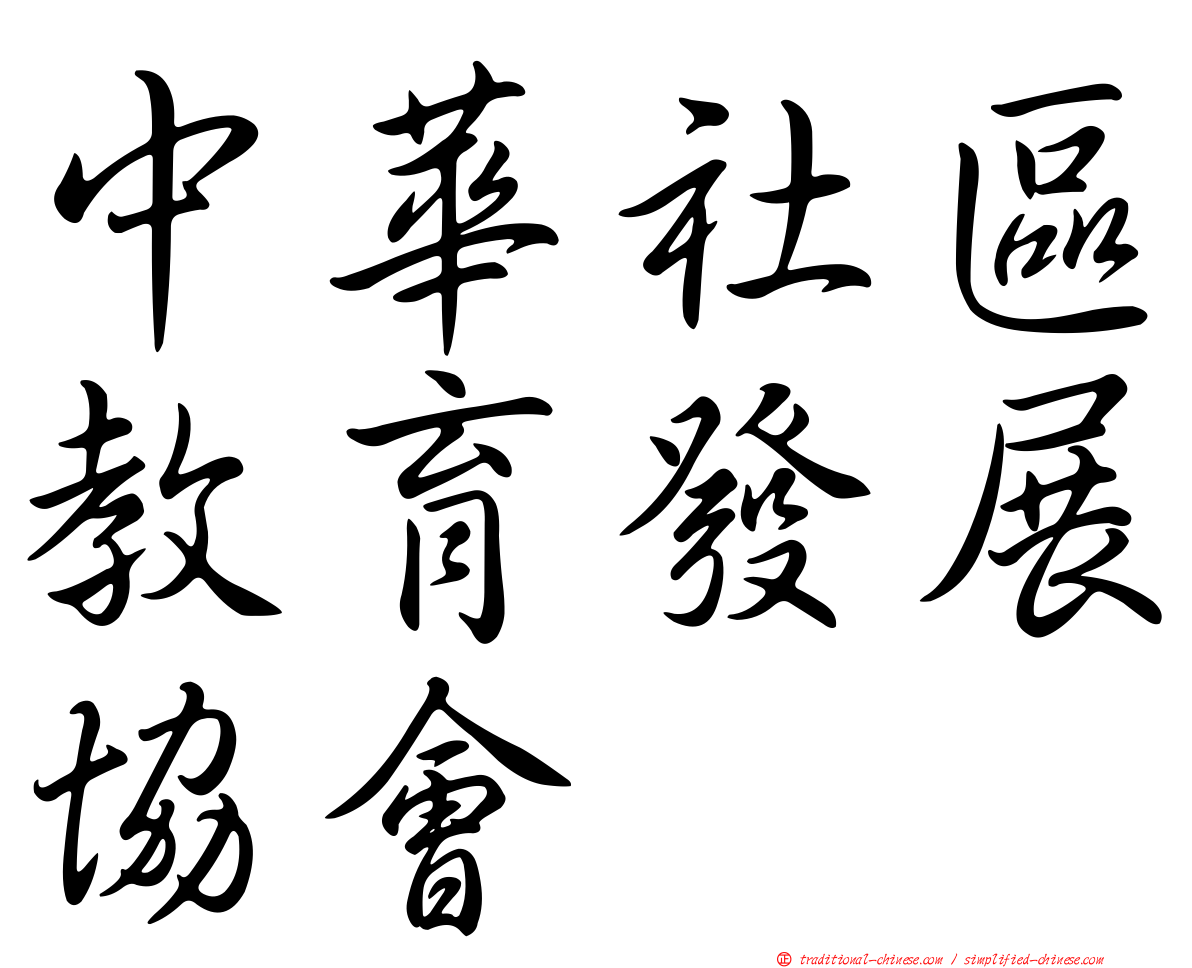 中華社區
教育發展
協會
正 traditional-chinese.com / simplified-chinese.com